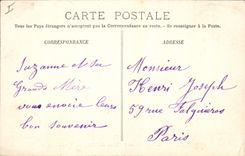 CARTE POSTALE
Tous les Pays étrangers n'acceptent pas la Correspondance au recto. - Se renseigner à la Poste.
CORRESPONDANCE
ADRESSE
Suzanne et sa
Grand Mère
vous envoie leurs
bon souvenir
Monsieur
Henri Joseph
59 rue Falguières
Paris